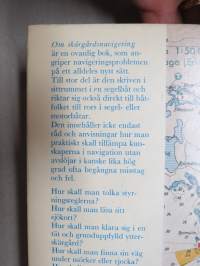 Om skärgårdsnavigering
är en ovanlig bok, som an-
griper navigeringsproblemen
på ett alldeles nytt sätt.
Till stor del är den skriven i
sittrummet i en segelbåt och
riktar sig också direkt till båt-
folket till rors i segel- eller
motorbåtar.
Den innehåller icke endast
råd och anvisningar hur man
praktiskt skall tillämpa kun-
skaperna i navigation utan
avslöjar i kanske lika hög
grad ofta begångna misstag
och fel.
Hur skall man tolka styr-
ningsreglerna?
Hur skall man läsa sitt
sjökort?
Hur skall man klara sig i en
tät och grunduppfylld ytter-
skärgård?
Hur skall man finna sin väg
under mörker eller tjocka?
1:50